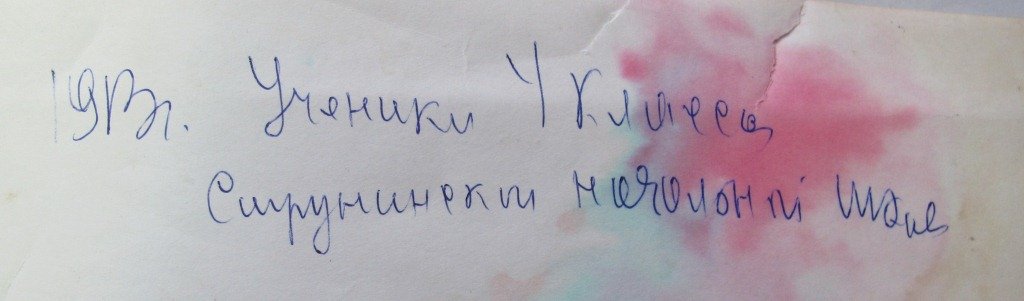 Ученики 1 класса
Струнинской начальной школы